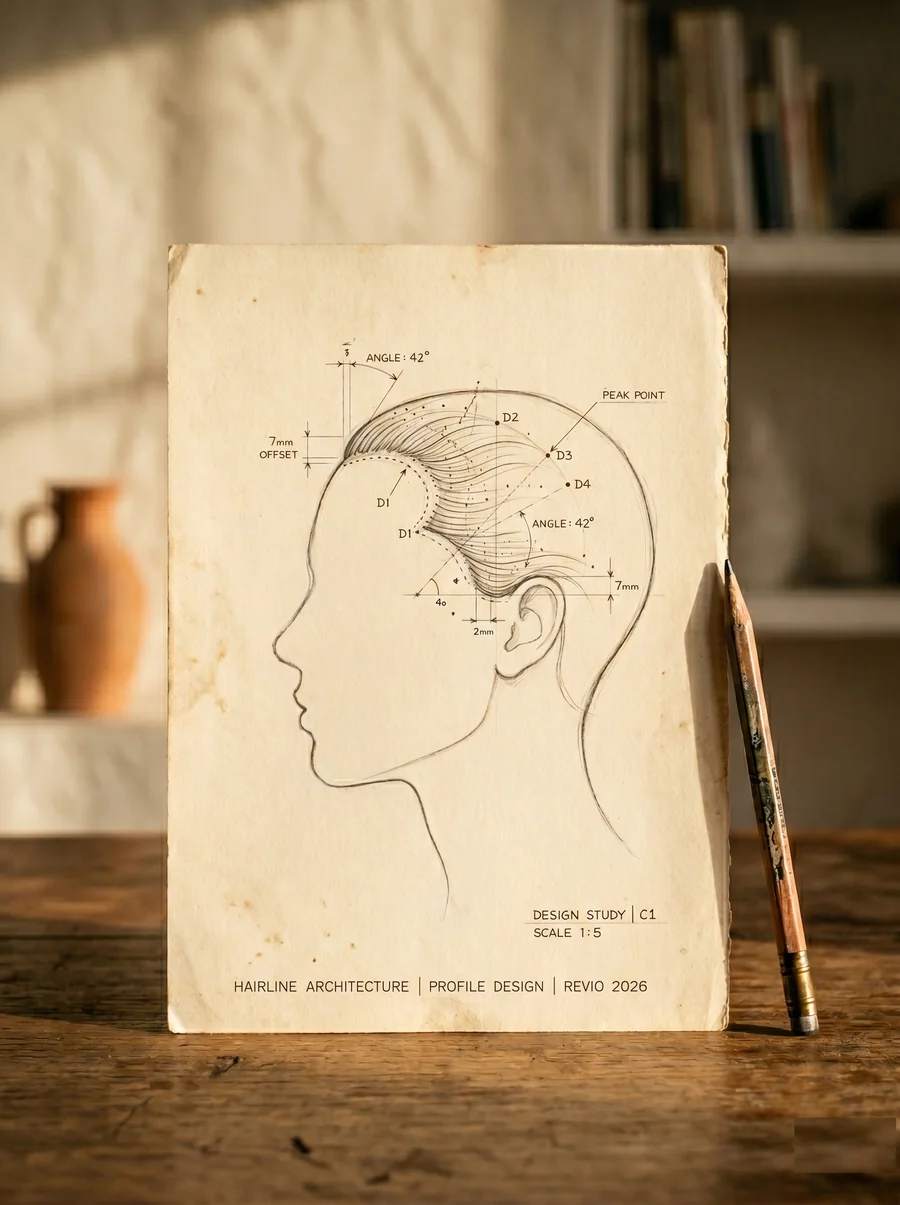 ANGLE: 42°
PEAK POINT
D2
7mm
OFFSET
D3
D4
D1
ANGLE: 42°
D1
7mm
40
2mm
DESIGN STUDY | C1
SCALE 1:5
HAIRLINE ARCHITECTURE | PROFILE DESIGN | REVIO 2026